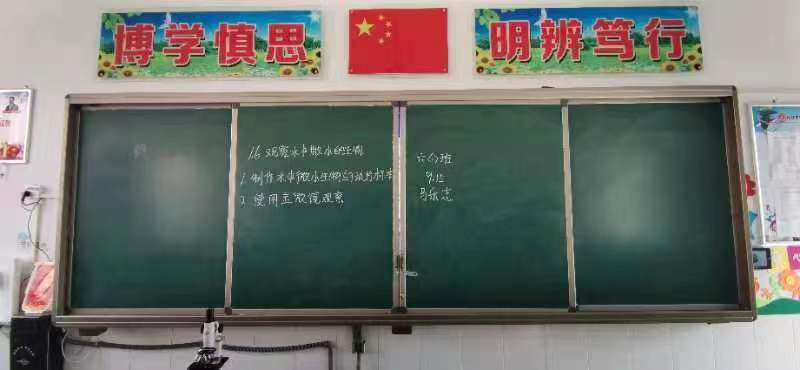 博学慎思
明辨笃行
1.6 观察水中微小的生物
1. 制作水中微小生物的玻片标本
2. 使用显微镜观察
六(1)班
9.12